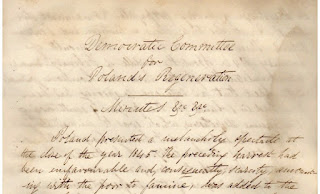 Democratic Committee
for
Poland's Regeneration
Minutes &c &c
Poland presented a melancholy spectacle at
the close of the year 1845. The preceding harvest had
been unfavourable and, consequently, scarcity, amount
ing with the poor to famine, was added to the